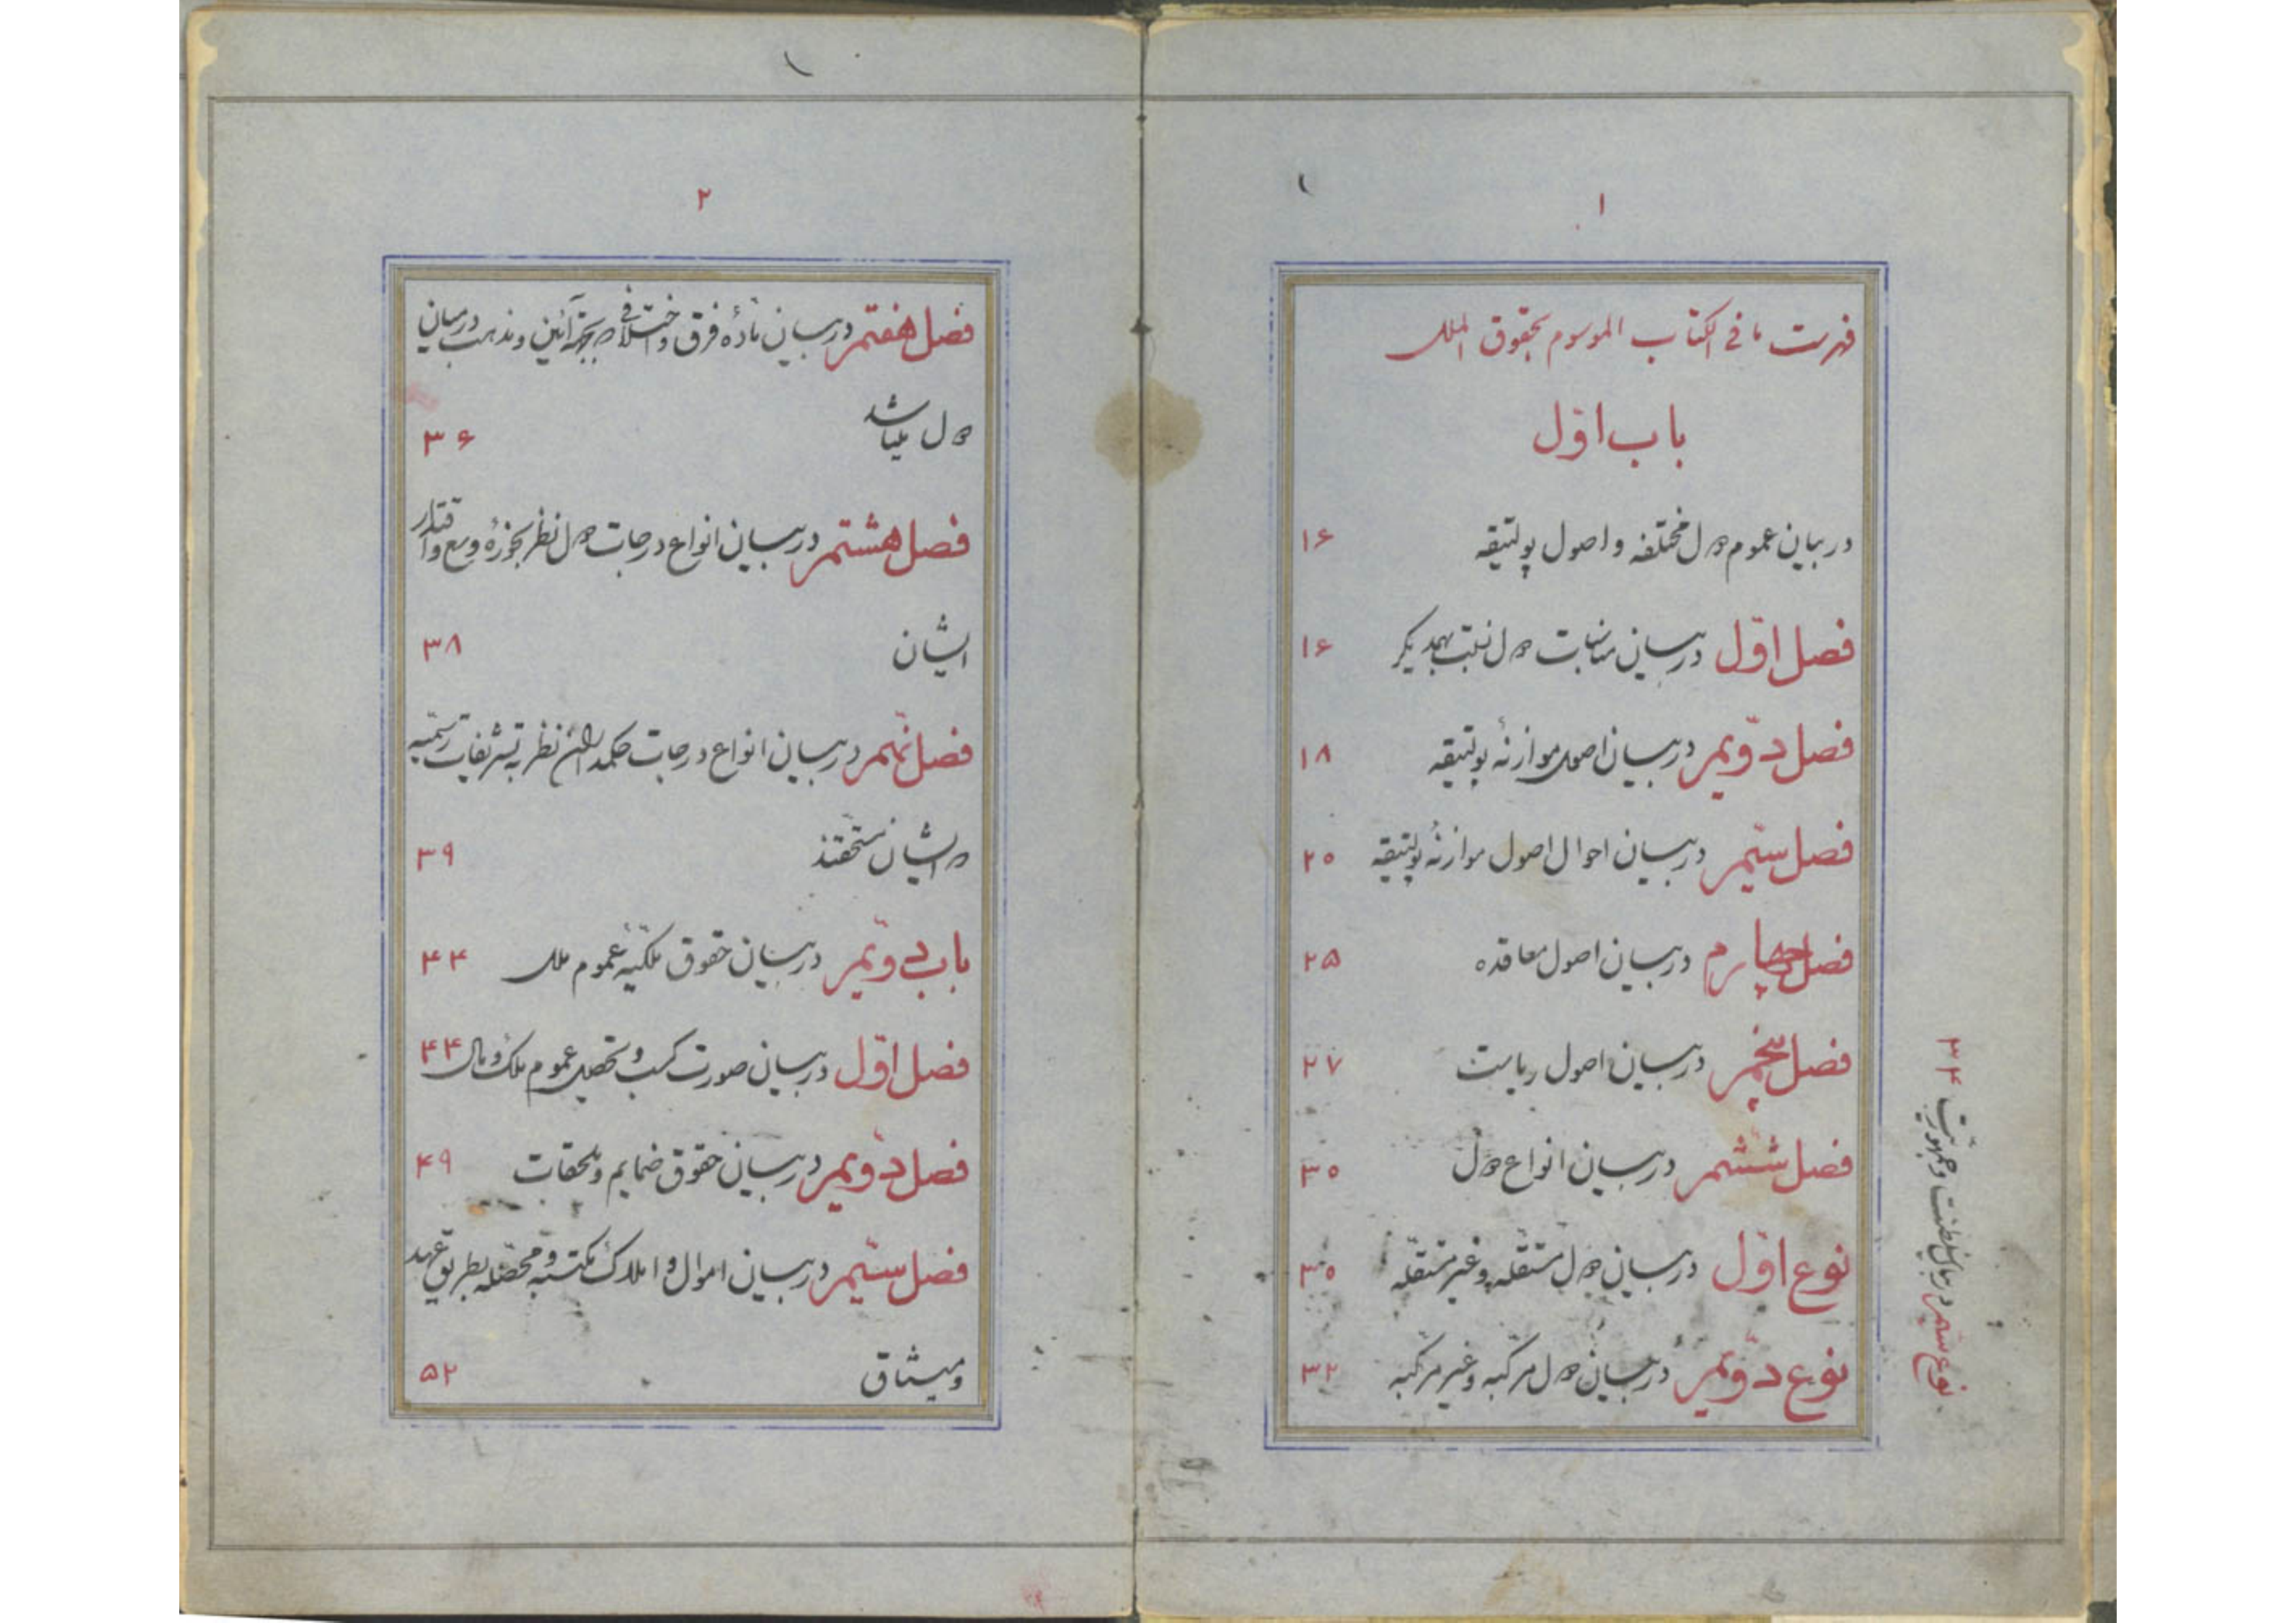 ۱
فهرست ما فی الکتاب الموسوم بحقوق الملل
باب اوّل
در بیان عموم دول مختلفه و اصول پولتیقه ۱۶
فصل اوّل در بیان مناسبات دول نسبت بهمدیگر ۱۶
فصل دوّیم در بیان اصول موازنهٔ پولتیقه ۱۸
فصل سیّم در بیان احوال اصول موازنهٔ پولتیقه ۲۰
فصل چهارم در بیان اصول معاقده ۲۵
فصل پنجم در بیان اصول ریاست ۲۷
فصل ششم در بیان انواع دول ۳۰
نوع اوّل در بیان دول مستقلّه و غیر مستقلّه ۳۰
نوع دوّیم در بیان دول مرکّبه و غیر مرکّبه ۳۲
نوع سیّم در بیان سلطنت و جمهوریّت ۳۴
۲
فصل هفتم در بیان مادهٔ فرق و اختلافی که بجهة آئین و مذهب در میان
دول میباشد ۳۶
فصل هشتم در بیان انواع درجات دول نظر بحوزهٔ وسع و اقتدار
ایشان ۳۸
فصل نهم در بیان انواع درجات حکمداران نظر به تشریفات رسمیّه
که ایشان مستحقند ۳۹
باب دویّم در بیان حقوق ملکیّهٔ عموم ملل ۴۴
فصل اوّل در بیان صورت کسب و تحصیل عموم ملک و مال ۴۴
فصل دوّیم در بیان حقوق ضمایم و ملحقات ۴۹
فصل سیّم در بیان اموال و املاک مکتسبه و محصّله بطریق عهد
و میثاق ۵۲